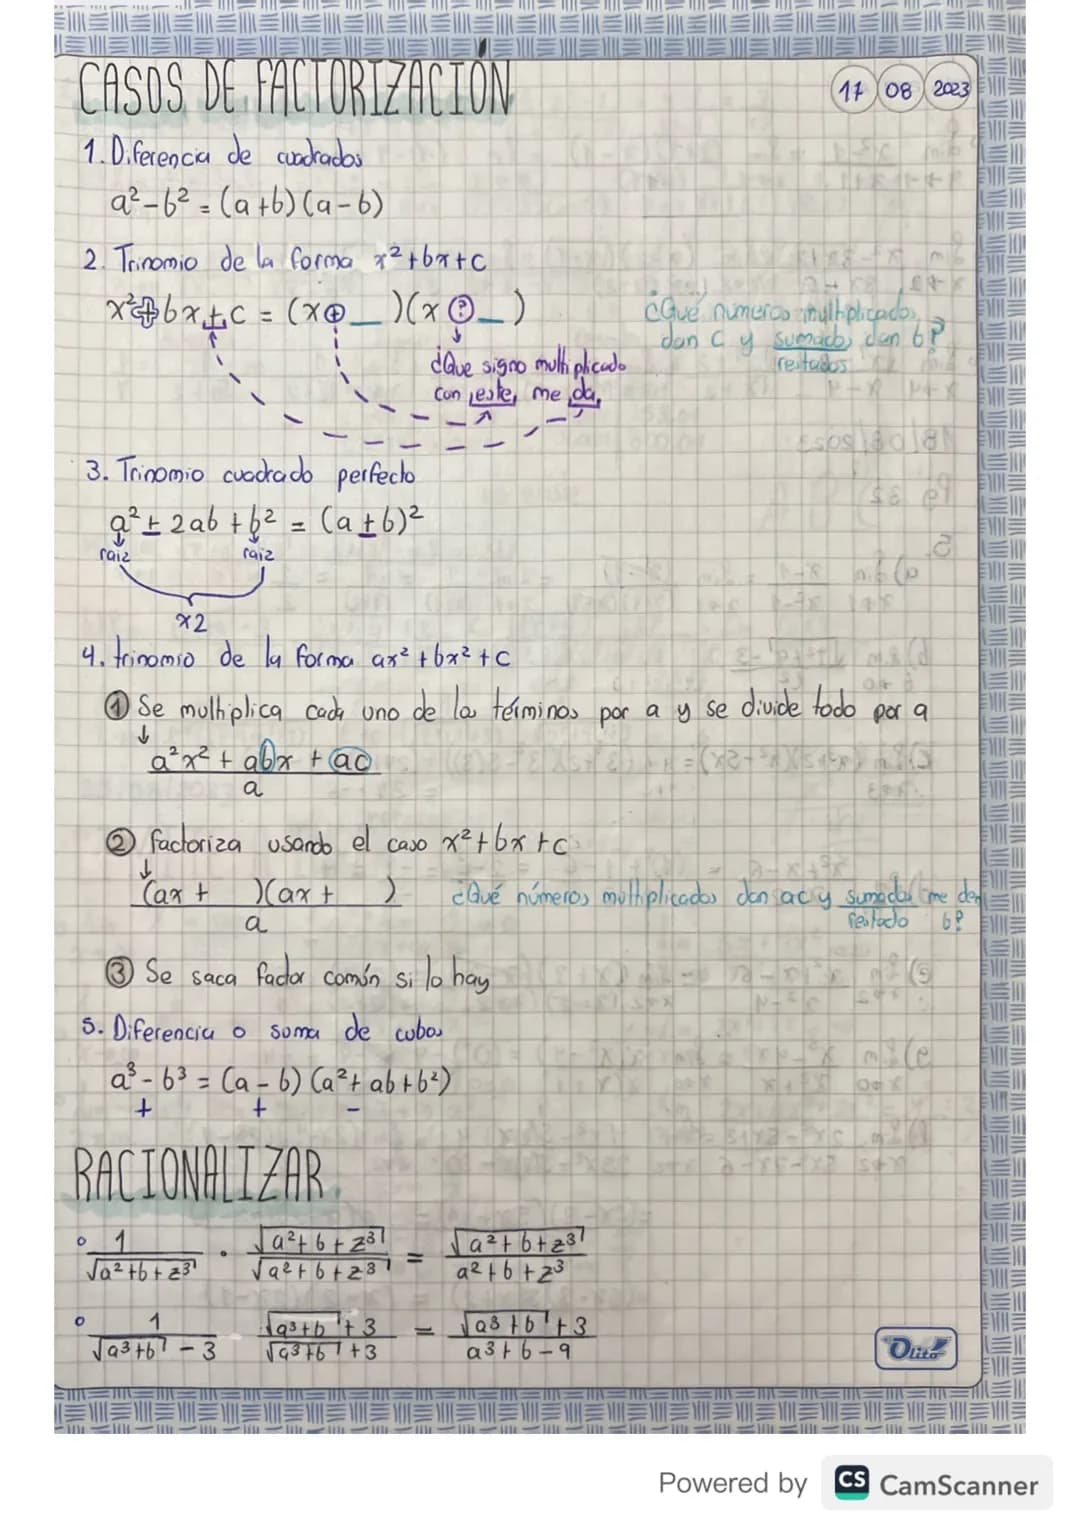 CASOS DE FACTORIZACIÓN
17 08 2023
1. Diferencia de cuadrados
a² - b² = (a+b)(a-b)
2. Trinomio de la forma x²+bx+c
x²+bx+c = (x+_)(x?_)
¿Qué números multiplicados
dan c y sumados dan b?
restados
¿Que signo multiplicado
con este, me da,
3. Trinomio cuadrado perfecto
a² ± 2ab + b² = (a ± b)²
raiz raiz
x2
4. trinomio de la forma ax²+bx²+c
① Se multiplica cada uno de los términos por a y se divide todo por a
a²x² + abx + ac
a
② factoriza usando el caso x²+bx+c
(ax + )(ax + )
a
¿Qué números multiplicados dan ac y sumados me den
restado b?
③ Se saca factor común si lo hay
5. Diferencia o suma de cubos
a³ - b³ = (a - b)(a² + ab + b²)
+ + -
RACIONALIZAR
1/√(a²+b+z³) · √(a²+b+z³)/√(a²+b+z³) = √(a²+b+z³)/(a²+b+z³)
1/(√(a³+b) - 3) · (√(a³+b) + 3)/(√(a³+b) + 3) = (√(a³+b) + 3)/(a³+b-9)
Olito
Powered by CS CamScanner